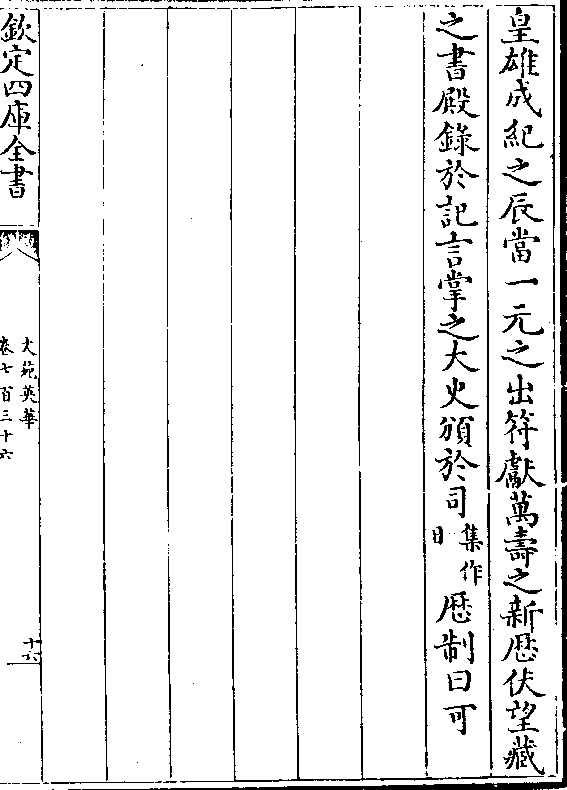 皇雄成紀之辰當一元之出符獻萬壽之新歴伏望藏
之書殿錄於記言掌之大史頒於司集作日歴制曰可
欽定四庫全書
文苑英華
卷七百三十六
十六